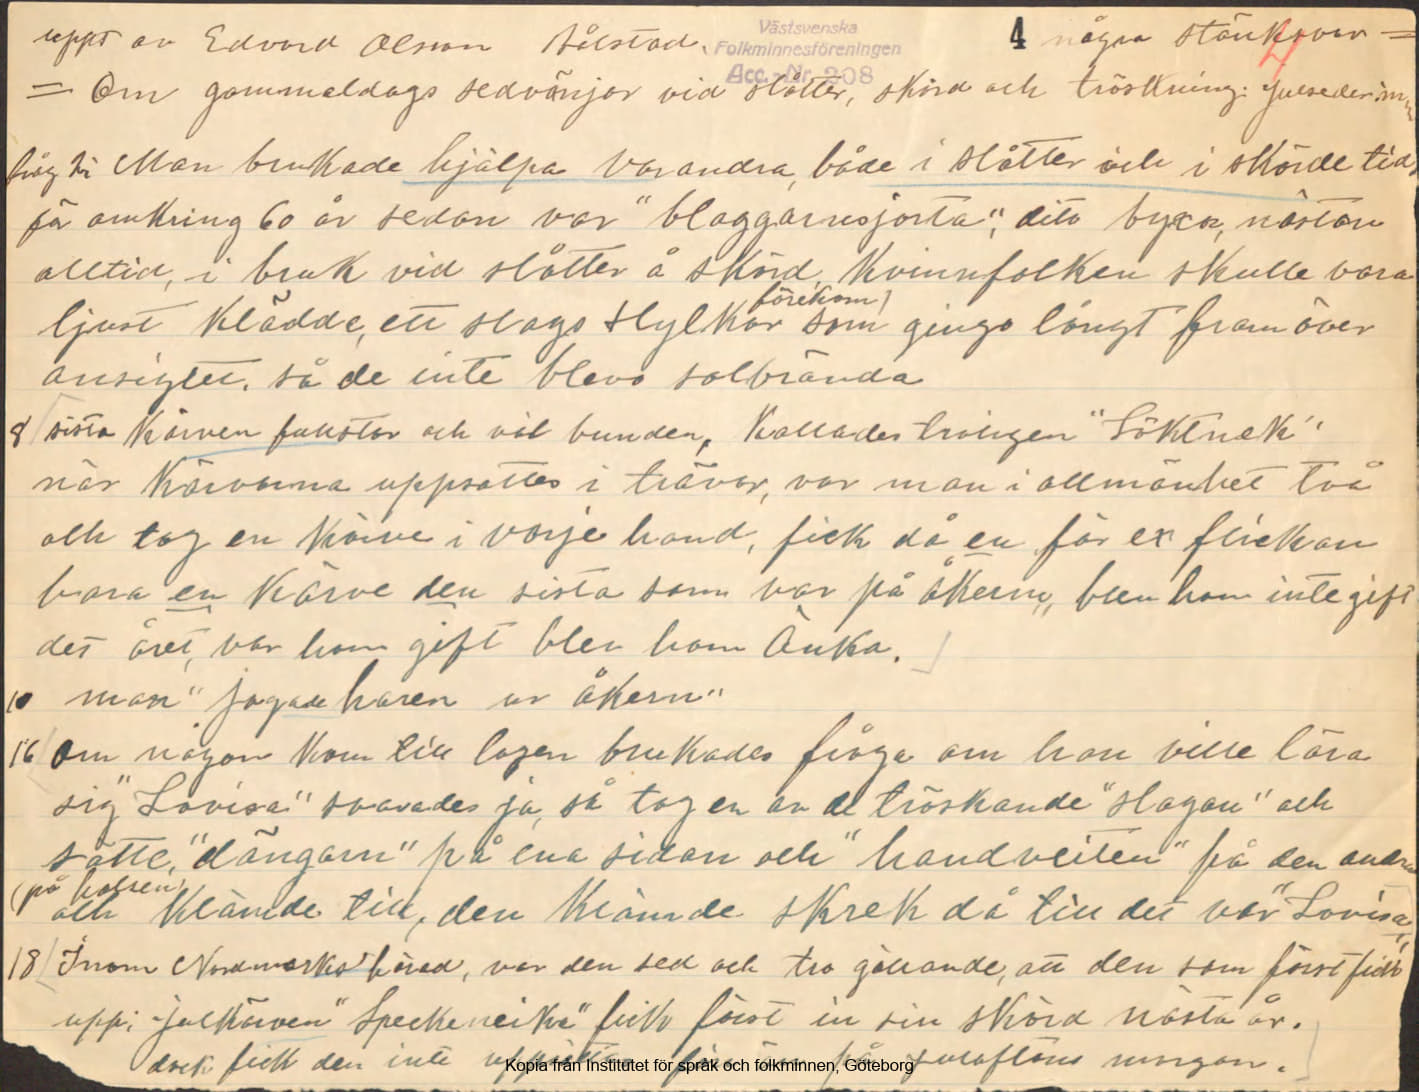 uppt av Edvard Olsson Bålstad.
Västsvenska
Folkminnesföreningen
Acc.-Nr. 208
4 några stänk over =
= Om gammeldags sedvänjor vid slåtter, skörd och tröskning. julseder
Man brukade hjälpa varandra, både i slåtter och i skörde tid
för omkring 60 år sedan var "blaggarnsjorta", dito byxor, nästan
alltid, i bruk vid slåtter å skörd, Kvinnfolken skulle vara
ljust Klädde, ett slags Hylkor (förekom) som gingo långt fram över
ansigtet. så de inte blevo solbrända
8 sista Kärven och väl bunden, Kallades troligen
när Kärvarna uppsattes i trävor, var man i allmänhet två
och tog en Kärve i varje hand, fick då en för ex flickan
bara en Kärve den sista som var på åkern, blev hon inte gift
det året, var hon gift blev hon Änka.
10 man "jagade haren ur åkern"
16 Om någon Kom till logen brukades fråga om han ville lära
sig "Lovisa" svarades ja, så tog en av de tröskande "slagan" och
satte, "dängarn" på ena sidan och "handveiten" på den andra
(på halsen) och Klämde till, den Klämde skrek då till det var "Lovisa",
18 Inom Nordmarks härad, var den sed och tro gällande, att den som först fick
upp "julkärven" "Speckeneika" fick först in sin skörd nästa år.
dock fick den inte på julaftons morgon.
Kopia från Institutet för språk och folkminnen, Göteborg